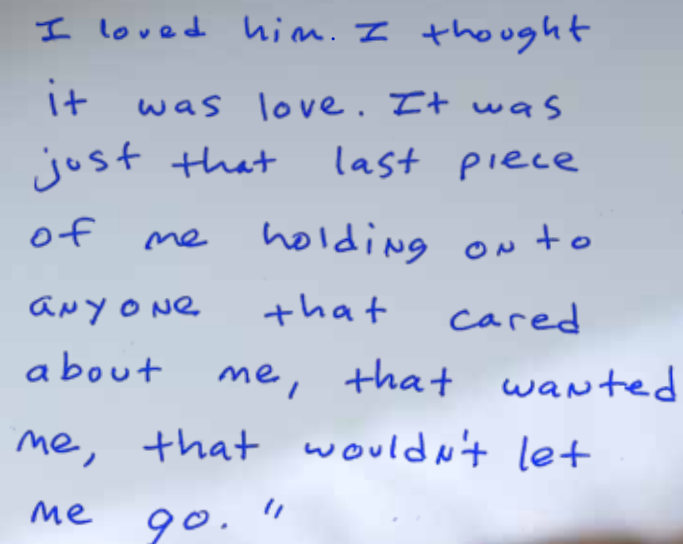 I loved him. I thought
it was love. It was
just that last piece
of me holding onto
anyone that cared
about me, that wanted
me, that wouldn't let
me go."